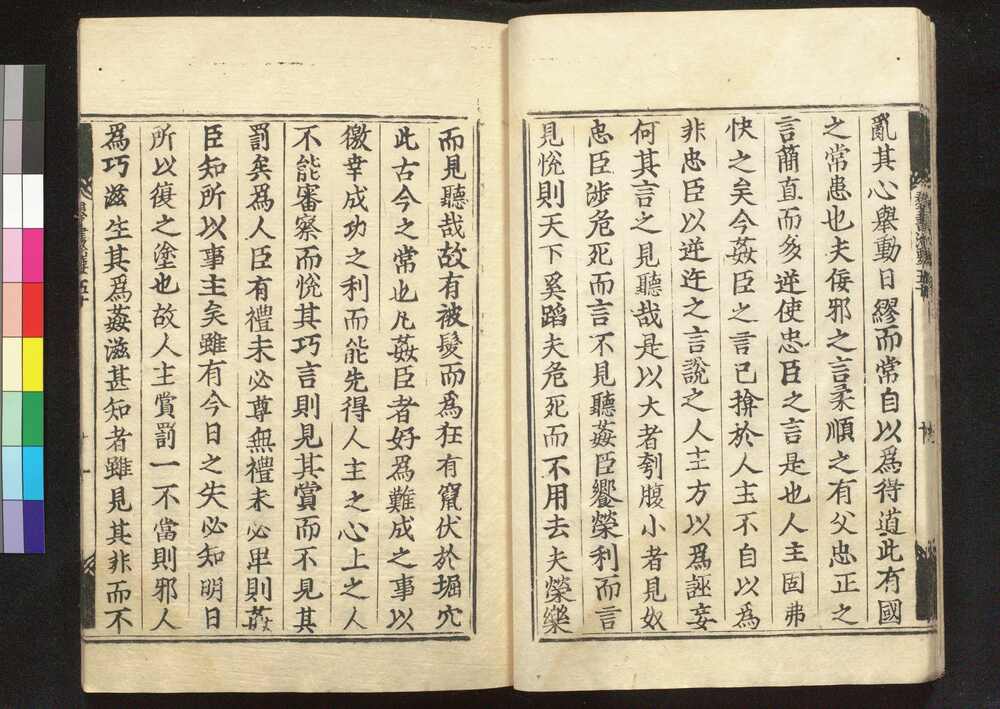 亂其心舉動日繆而常自以爲得道此有國
之常患也夫佞邪之言柔順之有父忠正之
言簡直而多逆使忠臣之言是也人主固弗
快之矣今姦臣之言已掩於人主不自以爲
非忠臣以逆迕之言說之人主方以爲誣妄
何其言之見聽哉是以大者刳腹小者見奴
忠臣涉危死而言不見聽姦臣饗榮利而言
見悅則天下奚蹈夫危死而不用去夫榮樂
而見聽哉故有被髮而爲狂有竄伏於堀穴
此古今之常也凡姦臣者好爲難成之事以
徼幸成功之利而能先得人主之心上之人
不能審察而悅其巧言則見其賞而不見其
罰矣爲人臣有禮未必尊無禮未必卑則姦
臣知所以事主矣雖有今日之失必知明日
所以復之塗也故人主賞罰一不當則邪人
爲巧滋生其爲姦滋甚知者雖見其非而不